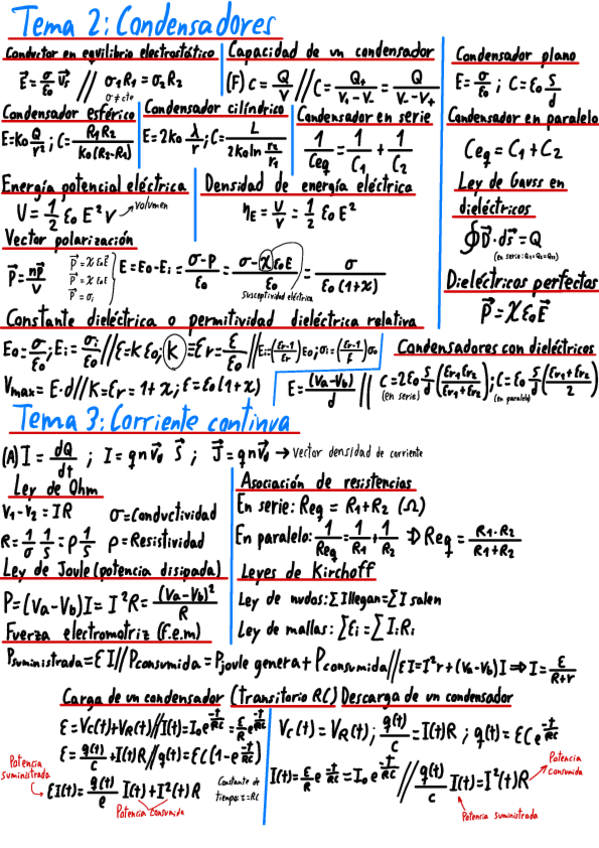 Tema 2: Condensadores
Conductor en equilibrio electrostático
E⃗ = σ/ε₀ v⃗s // σ₁R₁ = σ₂R₂
σ ≠ cte
Capacidad de un condensador
(F) C = Q/V // C = Q₊/(V₊-V₋) = Q/(V₋-V₊)
Condensador plano
E = σ/ε₀ ; C = ε₀ S/d
Condensador esférico
E = K₀ Q/r² ; C = R₁R₂/(K₀(R₂-R₁))
Condensador cilíndrico
E = 2K₀ λ/r ; C = L/(2K₀ ln r₂/r₁)
Condensador en serie
1/Ceq = 1/C₁ + 1/C₂
Condensador en paralelo
Ceq = C₁ + C₂
Energía potencial eléctrica
U = 1/2 ε₀ E² v → volumen
Densidad de energía eléctrica
ηE = U/V = 1/2 ε₀ E²
Ley de Gauss en
dieléctricos
∮D⃗·ds⃗ = Q
(en serie: Q₁=Q₂=Q₃)
Vector polarización
P⃗ = np⃗/V
P⃗ = χ ε₀ E⃗
P⃗ = χ ε₀ E⃗
P⃗ = σᵢ
E = E₀ - Eᵢ = (σ-P)/ε₀ = (σ-χε₀E)/ε₀ = σ/(ε₀(1+χ))
Susceptividad eléctrica
Dieléctricos perfectos
P⃗ = χ ε₀ E⃗
Constante dieléctrica o permitividad dieléctrica relativa
E₀ = σ/ε₀ ; Eᵢ = σᵢ/ε₀ // ε = K ε₀ ; K ≡ εr = ε/ε₀ // Eᵢ = ((εr-1)/εr) E₀ ; σᵢ = ((εr-1)/εr) σ₀
Vmax = E·d // K = εr = 1 + χ ; ε = ε₀(1+χ)
Condensadores con dieléctricos
E = (Va-Vb)/d // C = 2ε₀ S/d (εr₁εr₂/(εr₁+εr₂)) ; C = ε₀ S/d ((εr₁+εr₂)/2)
(en serie) (en paralelo)
Tema 3: Corriente continua
(A) I = dQ/dt ; I = qn v⃗₀ S⃗ ; J⃗ = qn v⃗₀ → Vector densidad de corriente
Ley de Ohm
V₁ - V₂ = IR σ = Conductividad
R = 1/σ 1/S = ρ 1/S ρ = Resistividad
Asociación de resistencias
En serie: Req = R₁ + R₂ (Ω)
En paralelo: 1/Req = 1/R₁ + 1/R₂ ⇒ Req = R₁·R₂/(R₁+R₂)
Ley de Joule (potencia disipada)
P = (Va-Vb)I = I²R = (Va-Vb)²/R
Leyes de Kirchoff
Ley de nudos: ΣI llegan = ΣI salen
Ley de mallas: Σεi = ΣIiRi
Fuerza electromotriz (f.e.m)
Psuministrada = εI // Pconsumida = Pjoule genera + Pconsumida // εI = I²r + (Va-Vb)I ⇒ I = ε/(R+r)
Carga de un condensador (Transitorio RC) Descarga de un condensador
ε = Vc(t) + VR(t) // I(t) = I₀ e^(-t/RC) = ε/R e^(-t/RC)
ε = q(t)/C + I(t)R // q(t) = εC(1-e^(-t/RC))
Potencia suministrada
εI(t) = q(t)/e I(t) + I²(t)R
Potencia consumida
Constante de
tiempo: τ = RC
Vc(t) = VR(t) ; q(t)/C = I(t)R ; q(t) = εC e^(-t/RC)
I(t) = ε/R e^(-t/RC) = I₀ e^(-t/RC) // q(t)/C I(t) = I²(t)R
Potencia consumida
Potencia suministrada